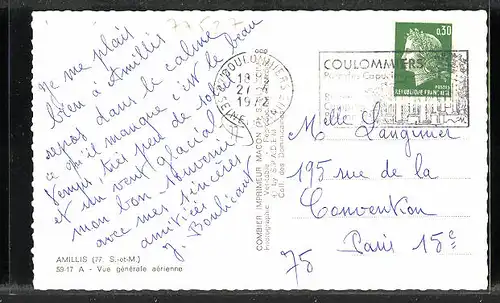 77527
Je me plais
bien à Amillis
dans le calme
repos
ce qu'il manque c'est le beau
temps très peu de soleil
et du vent glacial
mon bon souvenir
avec mes sincères
amitiés
J.
AMILLIS (77. S.-et-M.)
59-17 A - Vue générale aérienne
COMBIER IMPRIMEUR MACON
COULOMMIERS
SEINE ET
18 H
27 -
1972
COULOMMIERS
0,30
POSTES
REPUBLIQUE FRANÇAISE
Melle Langinier
195 rue de la
Convention
75 Paris 15e